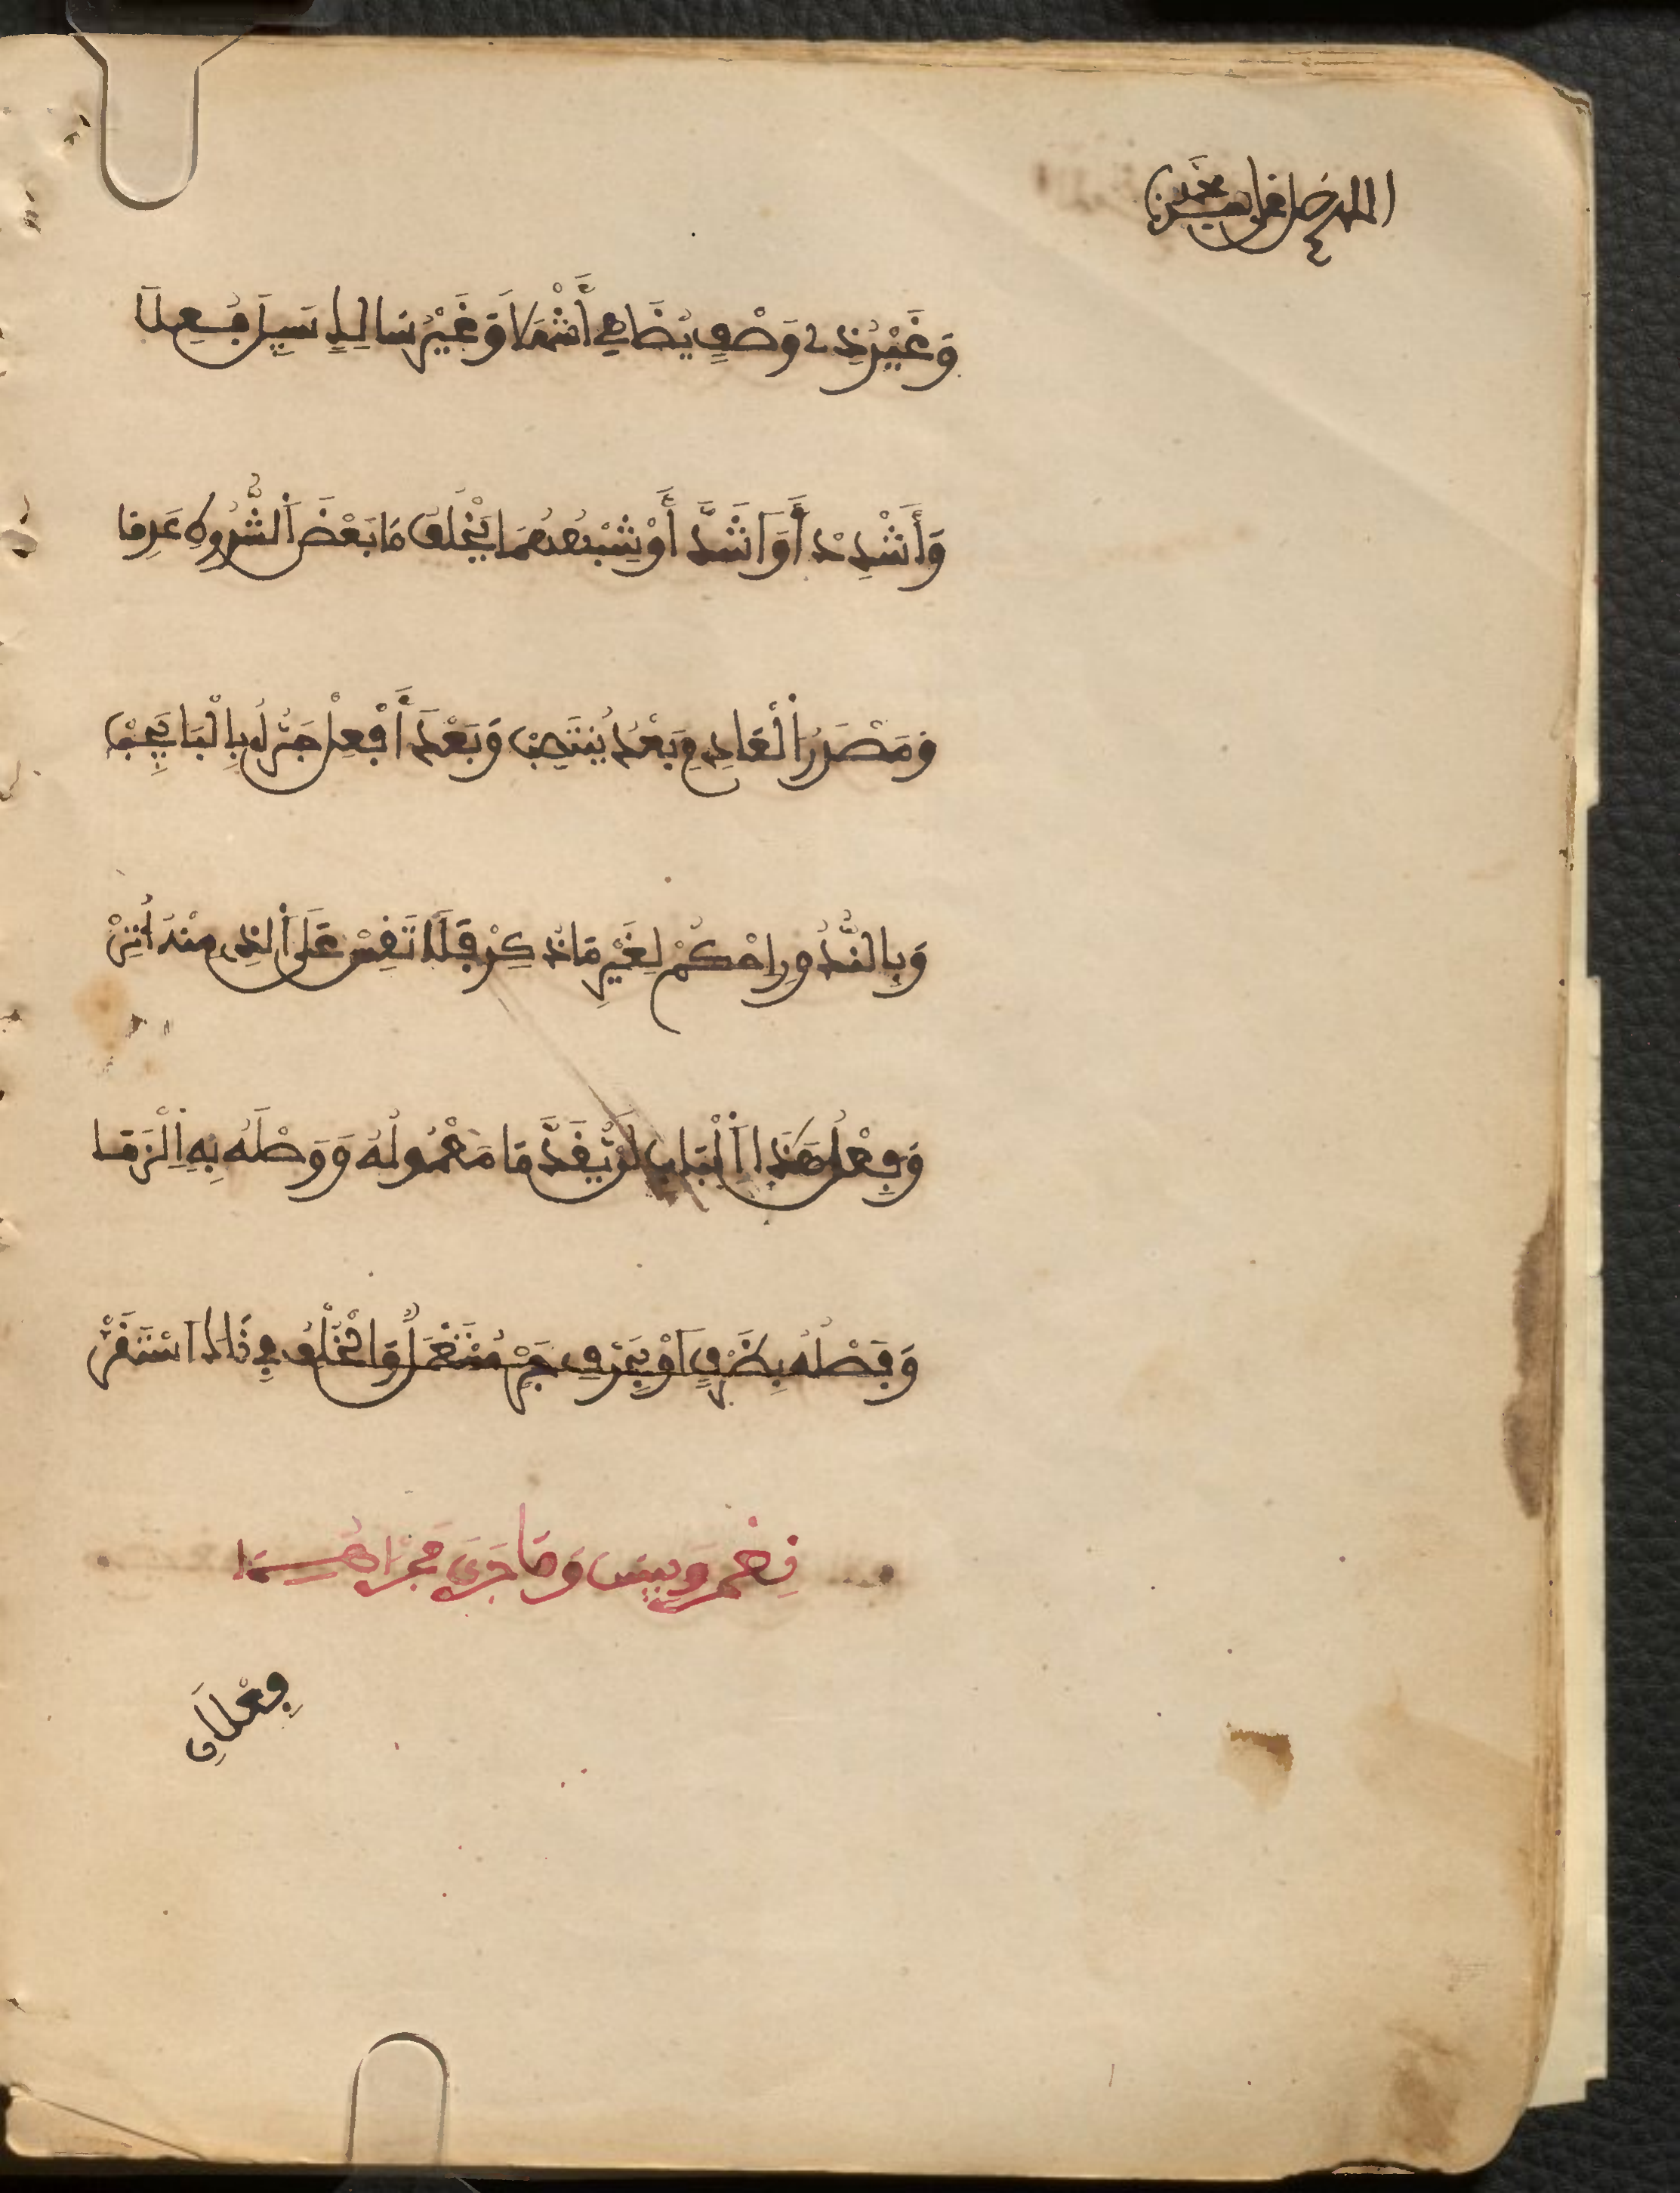 اللهم صل على سيدنا محمد
وَغَيْرِ ذِے وَصْفٍ يُضَاهِے أَشْهَلَا وَغَيْرِ سَالِكٍ سَبِيلَ فُعِلَا
وَأَشْدِدَ أَوَ اَشَدَّ أَوْ شِبْهُهُمَا يَخْلُفُ مَا بَعْضَ اَلشُّرُوطِ عَدِمَا
وَمَصْدَرُ اَلْعَادِمِ بَعْدُ يَنْتَصِبْ وَبَعْدَ أَفْعِلْ جَرُّهُ بِالْبَا يَجِبْ
وَبِالنُّدُورِ احْكُمْ لِغَيْرِ مَا ذُكِرْ فَلَا تَقِسْ عَلَى اَلذِے مِنْهُ أُثِرْ
وَفِعْلُ هَذَا اَلْبَابِ لَنْ يُقَدَّمَا مَعْمُولُهُ وَوَصْلَهُ بِهِ اِلْزَمَا
وَفَصْلُهُ بِظَرْفٍ اَوْ بِحَرْفِ جَرْ مُسْتَعْمَلٌ وَالْخُلْفُ فِے ذَاكَ اَسْتَقَرْ
نِعْمَ وَبِيسَ وَمَا جَرَى مَجْرَاهُمَا
فِعْلَانِ